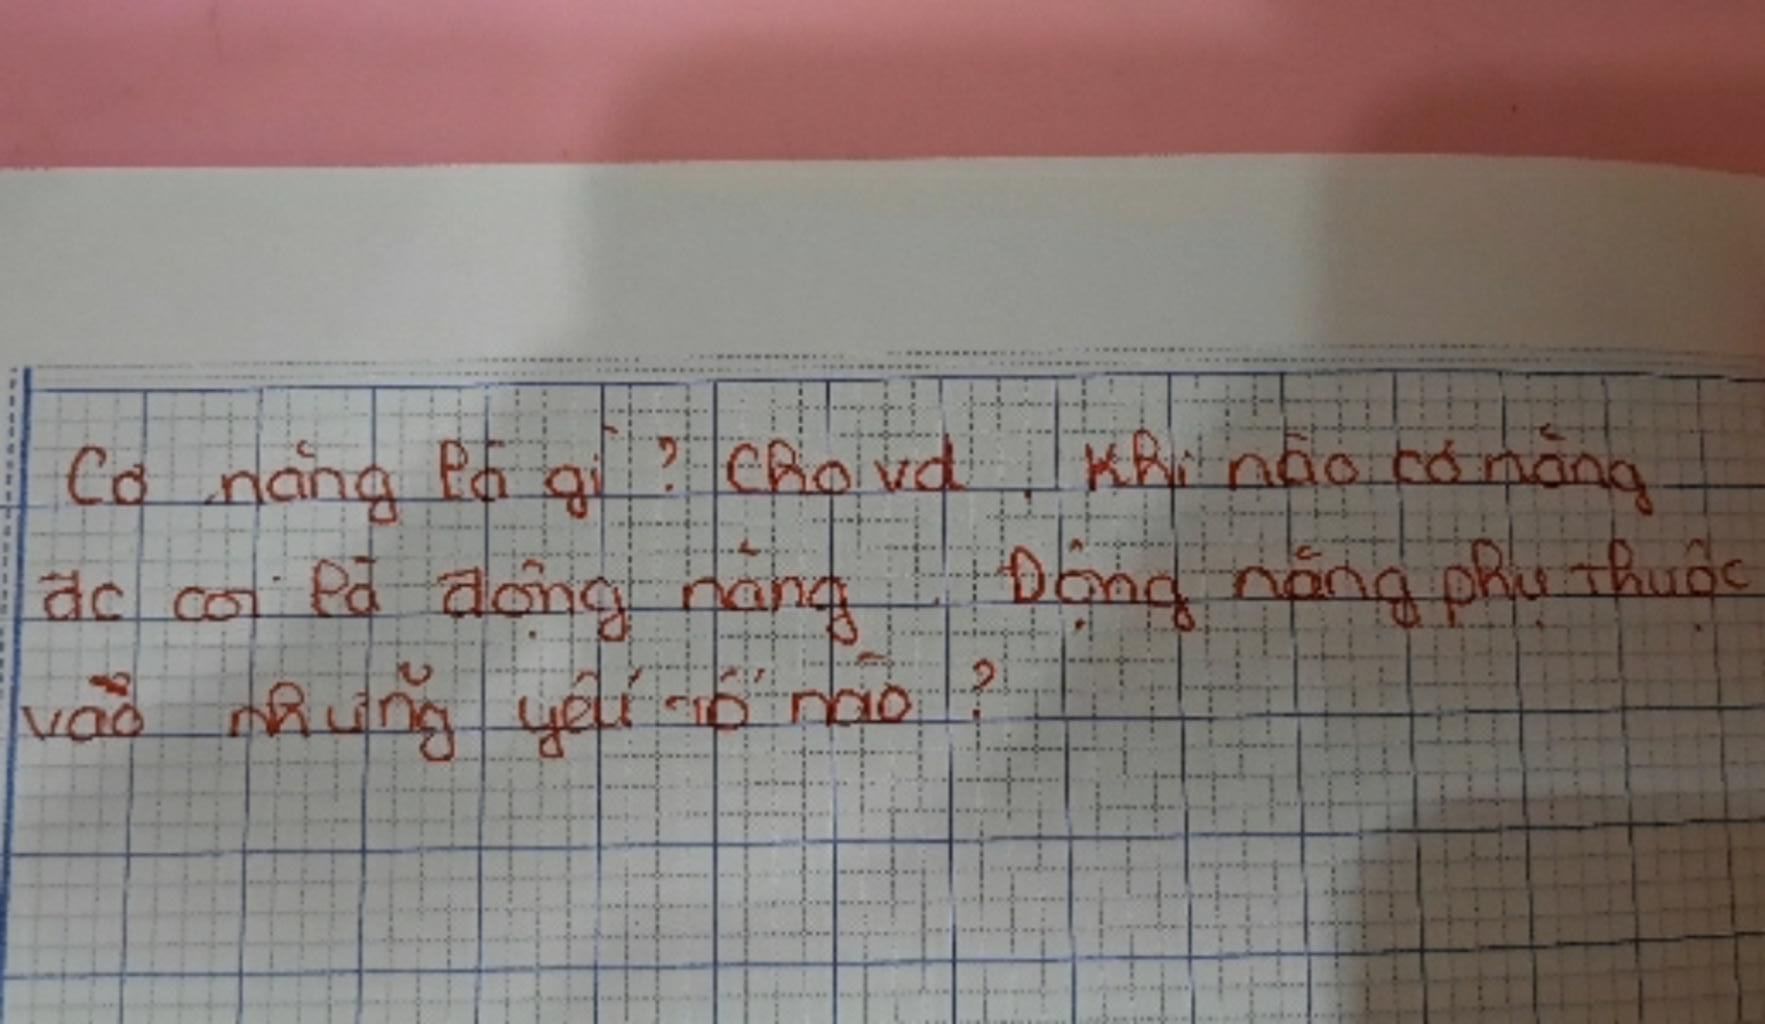 Cơ năng là gì ? Cho vd . Khi nào cơ năng
đc coi là động năng . Động năng phụ thuộc
vào những yếu tố nào ?